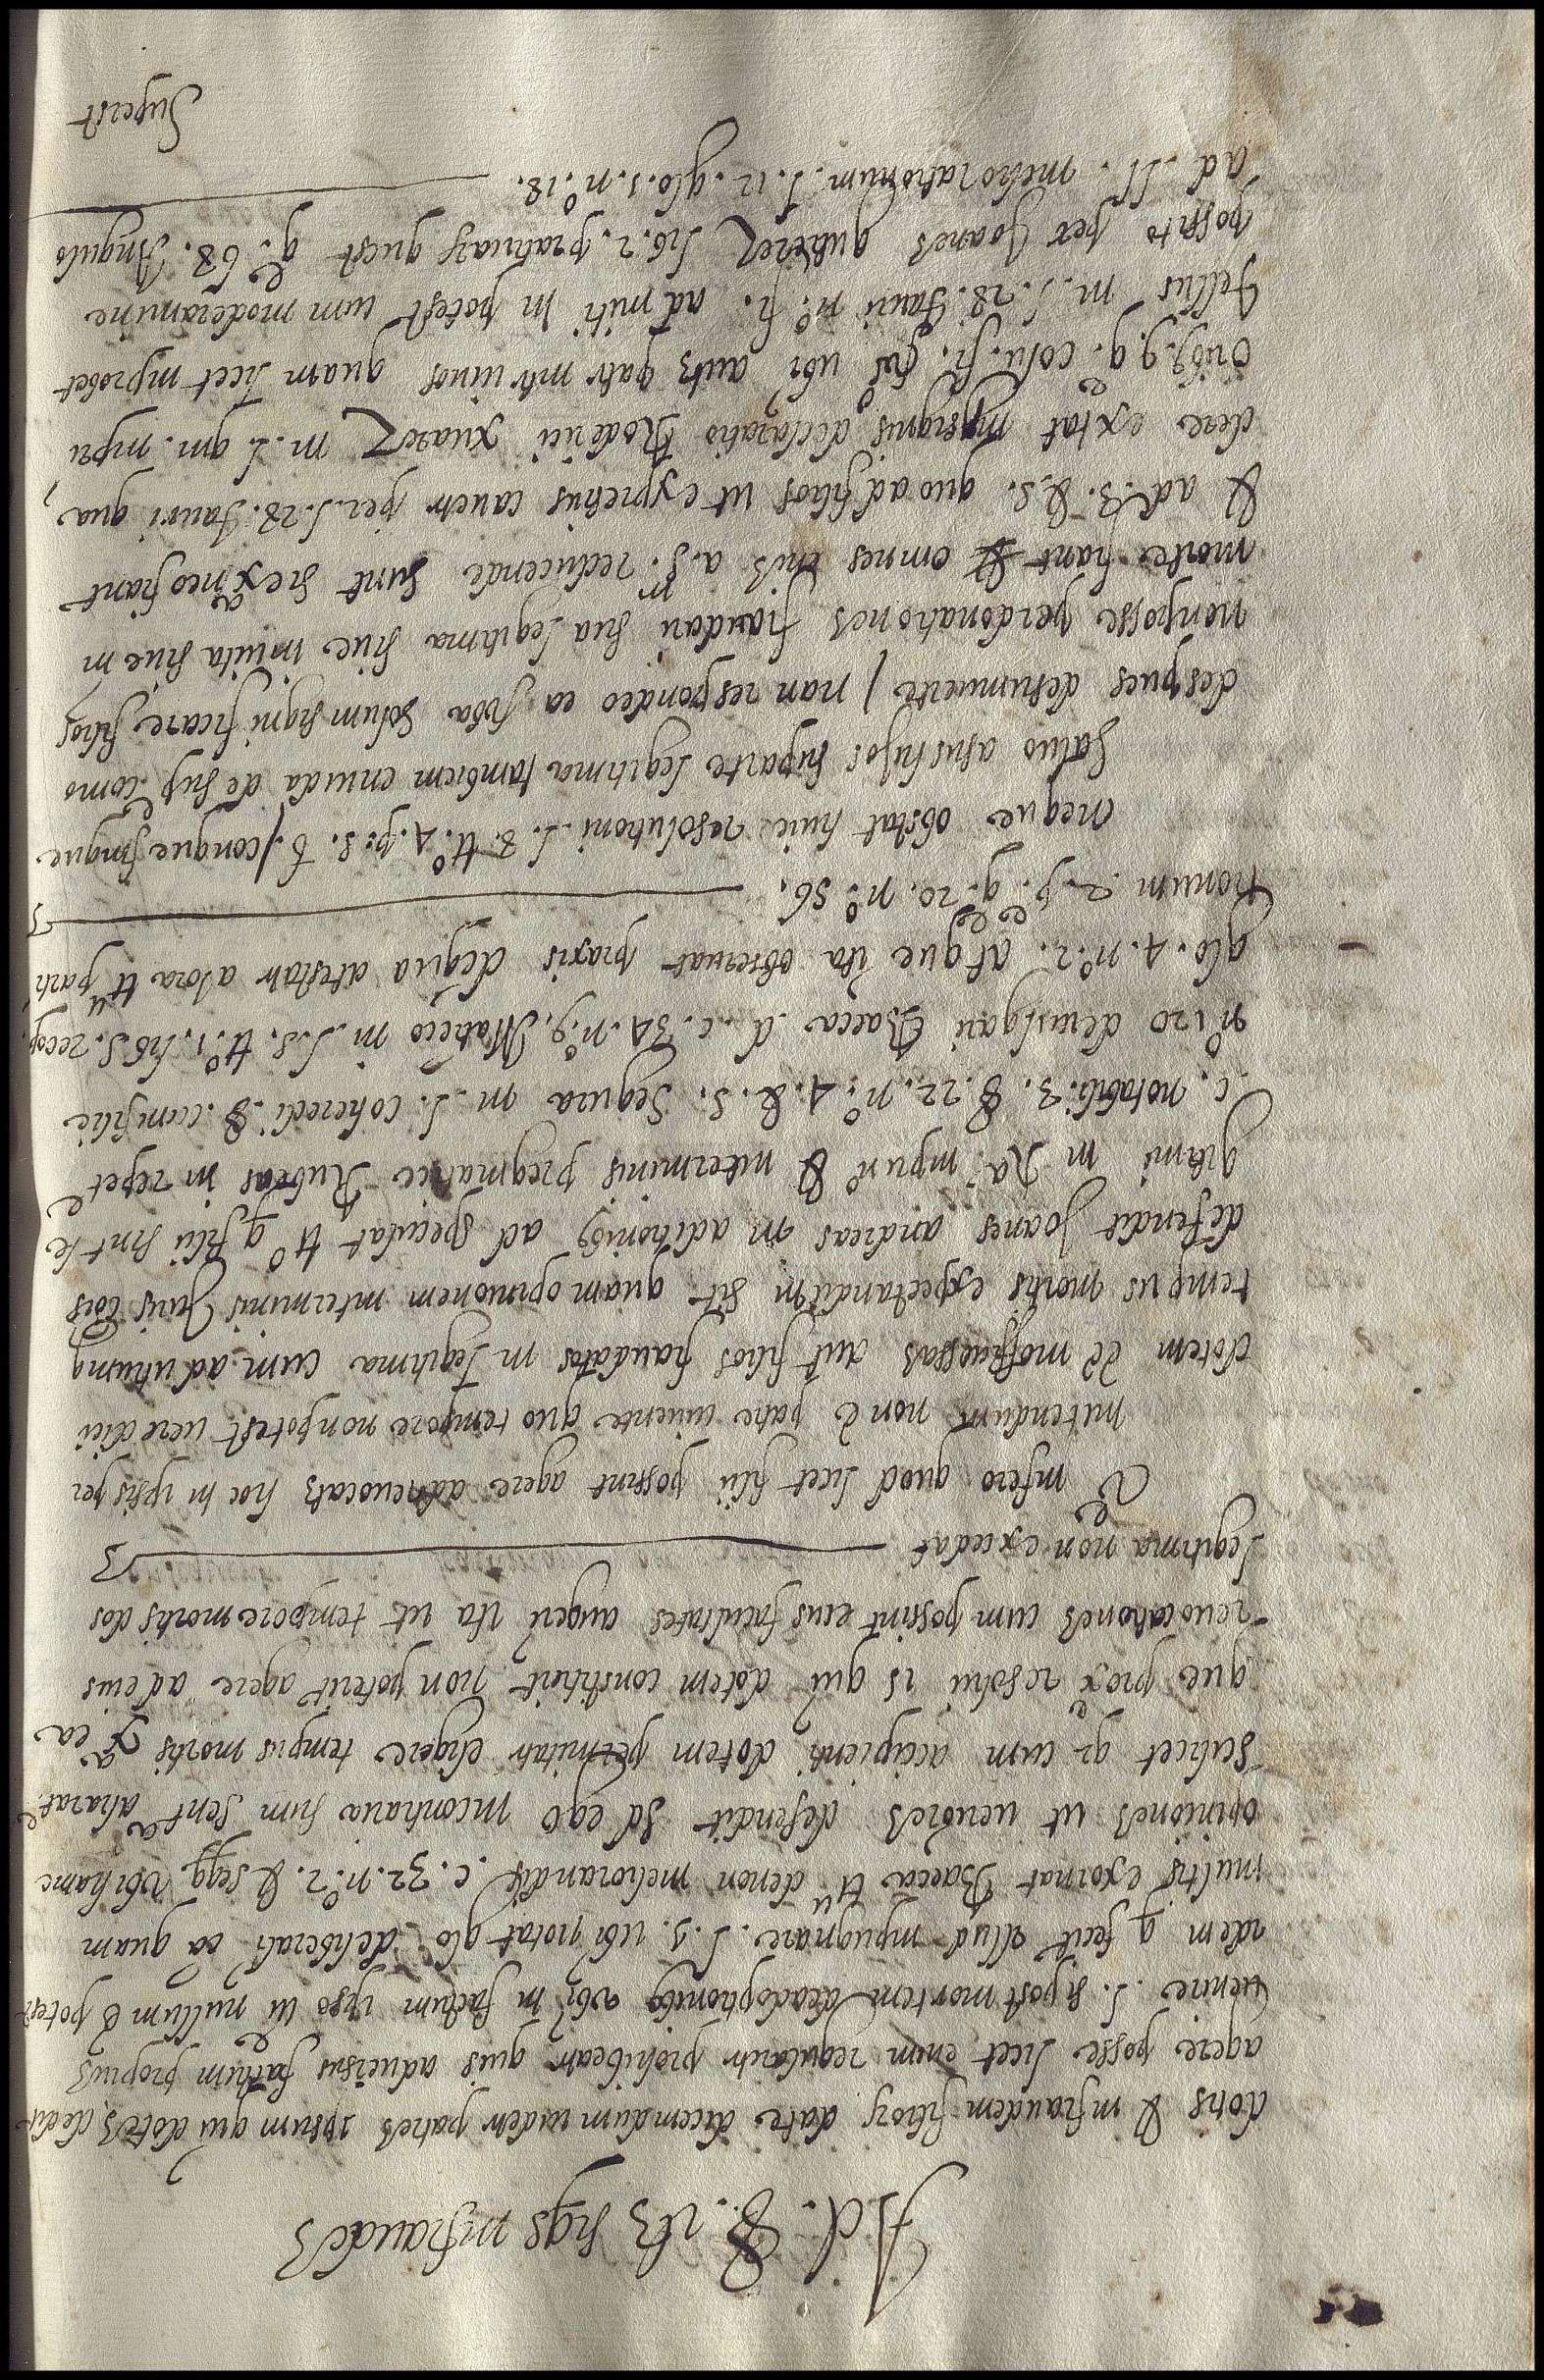 Ad. §. itẽ si qs in fraudẽ
dotis & in fraudem filiorʒ date dicendum videtr patrẽ ipsum qui dotẽ dedit
agere posse licet enim regularitr prohibeatr quis adversus factum propriũ
venire l. si post mortem de adoptionibꝫ ubi tñ factum ipso iu nullum ẽ poterit
idem q fecit illud impugnare l. 1. ubi notat glo. deliberati ca quam
multis exornat Baeca tt° de non meliorandis c. 32. n° 2. & seqq. ubi hanc
opiniones ut veriores defendit sd ego in contraria sum sent.a
scilicet q cum accipienti dotem permitatr eligere tempus mortis ea
que prox resolui is qui dotem constituit non poterit agere ad eius
revocationes cum possint eius facultates augeri ita ut tempore mortis dos
legitima non excedat
infero quod licet filii possint agere ad revocatẽ hoc tñ ipsis per
mitendum non ẽ patre vivente quo tempore non potest vere dici
dotem eẽ inofficiosas aut filios fraudatos in legitima cum ad utrumq
tempus mortis expectandum sit quam opinionem in terminis Juris Cois
defendit Joanes andreas in aditionibꝫ ad speculat tt° q filii sint le
gitimi in Ra. in pri° & in terminis pregmatice Rubeas in repet
c. notabili. 3. § 22. n° 4. & 5. Segura in l. coheredi §. cum filie
n° 120 de vulgari Baeca d. c. 34. n° 9. Matieço in l. 1. tt° 1. lib 5. recop.
glo. 4. n° 2. atque ita observat praxis de qua atestatr alora tt° parti
tionum 2. p. q. 20. n° 56.
neque obstat huic resolutioni l. 8 tt° 4. p. 5. b. / con que finque
salvo a sus hijos su parte legitima tambiem en vida de su pe como
despues de su muerte / nan respondeo ea verba solum significare filios
non posse per donationes fraudari sua legitima sive in vita sive in
morte fiant & omnes enĩ a. l. reducende sunt si ex neo fiant
& ad. 3. & 5. quo ad filios ut expresius cavetr per. l. 28. tauri qua
dere extat insignis declaratio Roderici xuarez in. l. qm. in pri
oribꝫ. 9. q. colu. fi. sed ubi autẽ patr intr vivos quam licet improbet
Tellus in. l. 28. tauri n° fi. admiti tñ potest cum moderamine
possito per Joanes gutierrez lib. 2. praticarʒ quest q. 68. Angulo
ad ll. meliorationum l. 12. glo. 1. n° 18.
Superest